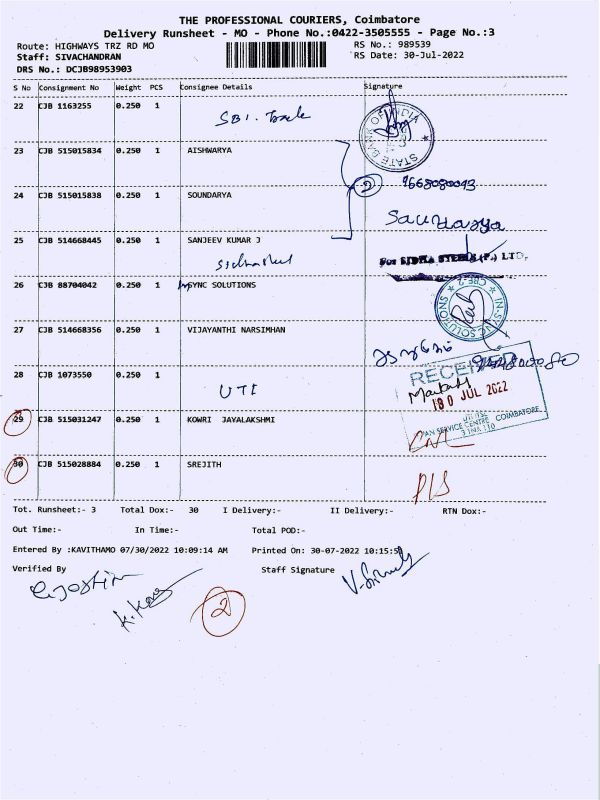 THE PROFESSIONAL COURIERS, Coimbatore
Delivery Runsheet - MO - Phone No.:0422-3505555 - Page No.:3
Route: HIGHWAYS TRZ RD MO
RS No.: 989539
Staff: SIVACHANDRAN
RS Date: 30-Jul-2022
DRS No.: DCJB98953903
S No Consignment No Weight PCS Consignee Details Signature
22 CJB 1163255 0.250 1
SBI. Trade
STATE BANK OF INDIA
23 CJB 515015834 0.250 1 AISHWARYA
2 9668080093
24 CJB 515015838 0.250 1 SOUNDARYA
Soundarya
25 CJB 514668445 0.250 1 SANJEEV KUMAR J
For SIDHA STEELS (P.) LTD.
26 CJB 88704042 0.250 1 INSYNC SOLUTIONS
IN-SYNC SOLUTIONS
CBE-2
27 CJB 514668356 0.250 1 VIJAYANTHI NARSIMHAN
28 CJB 1073550 0.250 1
UTI
RECEIVED
30 JUL 2022
PAN SERVICE CENTRE COIMBATORE
29 CJB 515031247 0.250 1 KOWRI JAYALAKSHMI
CNL
30 CJB 515028884 0.250 1 SREJITH
PLS
Tot. Runsheet:- 3 Total Dox:- 30 I Delivery:- II Delivery:- RTN Dox:-
Out Time:- In Time:- Total POD:-
Entered By :KAVITHAMO 07/30/2022 10:09:14 AM Printed On: 30-07-2022 10:15:5
Verified By Staff Signature
2